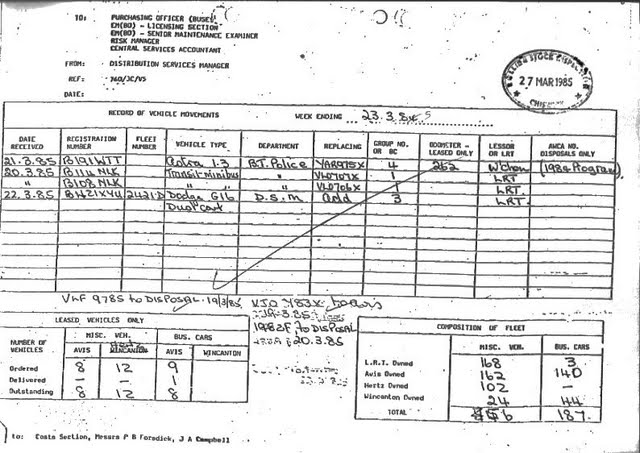 TO: PURCHASING OFFICER (BUSES)
EM(BO) - LICENSING SECTION
EM(BO) - SENIOR MAINTENANCE EXAMINER
RISK MANAGER
CENTRAL SERVICES ACCOUNTANT
FROM: DISTRIBUTION SERVICES MANAGER
REF: 760/JC/VS
DATE:
27 MAR 1985
RECORD OF VEHICLE MOVEMENTS WEEK ENDING 23.3.85
DATE RECEIVED REGISTRATION NUMBER FLEET NUMBER VEHICLE TYPE DEPARTMENT REPLACING GROUP NO. OR BC ODOMETER - LEASED ONLY LESSOR or LRT AWCA NO. DISPOSALS ONLY
21.3.85 B191WTT Astra 1.3 B.T. Police YAR975X 4 262 W'cton (1984 Program)
20.3.85 B114 MLK Transit minibus " VLO707X 1 LRT
" B108 MLK " " " VLO706X 1 LRT
22.3.85 2421-D Dodge G16 D.S.M. Add 3 LRT.
Dual cart
VHF 978S to DISPOSAL 19/3/85
1982F to DISPOSAL
20.3.85
LEASED VEHICLES ONLY
NUMBER OF VEHICLES MISC. VEH. BUS. CARS
AVIS WINCANTON AVIS WINCANTON
Ordered 8 12 9
Delivered - - 1
Outstanding 8 12 8
COMPOSITION OF FLEET
MISC. VEH. BUS. CARS
L.R.T. Owned 168 3
Avis Owned 162 140
Hertz Owned 102 -
Wincanton Owned 24 44
TOTAL 187
to: Costs Section, Messrs P B Forsdick, J A Campbell